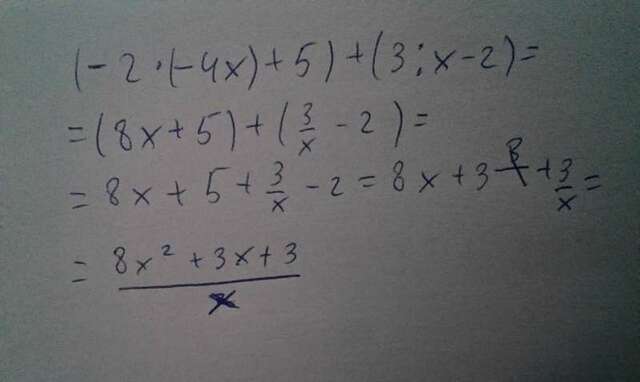 (-2·(-4x)+5)+(3:x-2)=
=(8x+5)+(3/x-2)=
=8x+5+3/x-2=8x+3+3/x=
=(8x²+3x+3)/x